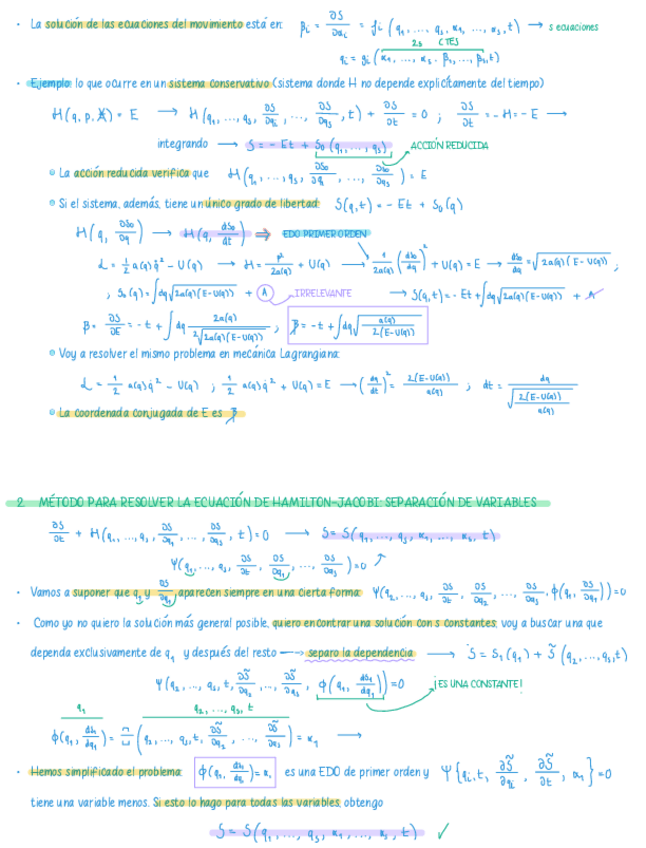 · La solución de las ecuaciones del movimiento está en: βᵢ = ∂S/∂αᵢ = fᵢ (q₁, ..., qₛ, α₁, ..., αₛ, t) → s ecuaciones
2s CTES
qᵢ = gᵢ (α₁, ..., αₛ, β₁, ..., βₛ, t)
· Ejemplo: lo que ocurre en un sistema conservativo (sistema donde H no depende explícitamente del tiempo)
H(q, p, t) = E → H(q₁, ..., qₛ, ∂S/∂q₁, ..., ∂S/∂qₛ, t) + ∂S/∂t = 0 ; ∂S/∂t = - H = - E →
integrando → S = - Et + S₀ (q₁, ..., qₛ) ACCIÓN REDUCIDA
o La acción reducida verifica que H(q₁, ..., qₛ, ∂S₀/∂q₁, ..., ∂S₀/∂qₛ) = E
o Si el sistema, además, tiene un único grado de libertad: S(q,t) = - Et + S₀(q)
H(q, ∂S₀/∂q) → H(q, dS₀/dt) ⇒ EDO PRIMER ORDEN
L = 1/2 a(q) q̇² - U(q) → H = p²/2a(q) + U(q) → 1/2a(q) (dS₀/dq)² + U(q) = E → dS₀/dq = √(2a(q)(E-U(q))) ;
; S₀(q) = ∫dq √(2a(q)(E-U(q))) + A IRRELEVANTE → S(q,t) = - Et + ∫dq √(2a(q)(E-U(q))) + A
β = ∂S/∂E = - t + ∫dq 2a(q)/2√(2a(q)(E-U(q))) ; β = - t + ∫dq √(a(q)/2(E-U(q)))
o Voy a resolver el mismo problema en mecánica Lagrangiana:
L = 1/2 a(q) q̇² - U(q) ; 1/2 a(q) q̇² + U(q) = E → (dq/dt)² = 2(E-U(q))/a(q) ; dt = dq/√(2(E-U(q))/a(q))
o La coordenada conjugada de E es β
2. MÉTODO PARA RESOLVER LA ECUACIÓN DE HAMILTON-JACOBI: SEPARACIÓN DE VARIABLES
∂S/∂t + H(q₁, ..., qₛ, ∂S/∂q₁, ..., ∂S/∂qₛ, t) = 0 → S = S(q₁, ..., qₛ, α₁, ..., αₛ, t)
Ψ(q₁, ..., qₛ, ∂S/∂t, ∂S/∂q₁, ..., ∂S/∂qₛ) = 0
· Vamos a suponer que q₁ y ∂S/∂q₁, aparecen siempre en una cierta forma: Ψ(q₂, ..., qₛ, ∂S/∂t, ∂S/∂q₂, ..., ∂S/∂qₛ, ϕ(q₁, ∂S/∂q₁)) = 0
· Como yo no quiero la solución más general posible, quiero encontrar una solución con s constantes, voy a buscar una que
dependa exclusivamente de q₁ y después del resto → separo la dependencia → S = S₁(q₁) + S̃ (q₂, ..., qₛ, t)
Ψ(q₂, ..., qₛ, t, ∂S̃/∂q₂, ..., ∂S̃/∂qₛ, ϕ(q₁, dS₁/dq₁)) = 0 ¡ES UNA CONSTANTE!
q₁ q₂, ..., qₛ, t
ϕ(q₁, dS₁/dq₁) = Ξ (q₂, ..., qₛ, t, ∂S̃/∂q₂, ..., ∂S̃/∂qₛ) = α₁ →
· Hemos simplificado el problema: ϕ(q₁, dS₁/dq₁) = α₁ es una EDO de primer orden y Ψ{qᵢ, t, ∂S̃/∂qᵢ, ∂S̃/∂t, α₁} = 0
tiene una variable menos. Si esto lo hago para todas las variables, obtengo
S = S(q₁, ..., qₛ, α₁, ..., αₛ, t) ✓